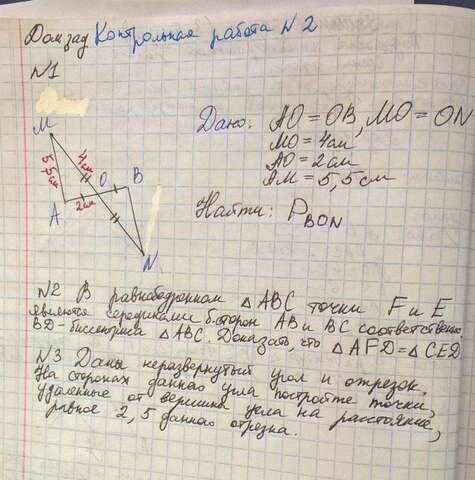 Дом зад Контрольная работа N2
N1
M
5,5см
4см
O
B
A
2см
N
Дано: AO = OB, MO = ON
MO = 4см
AO = 2см
AM = 5,5см
Найти: P BON
N2 В равнобедренном △ABC точки F и E
являются серединами б. сторон AB и BC соответственно.
BD - биссектриса △ABC. Доказать, что △AFD = △CED.
N3 Даны неразвернутый угол и отрезок.
На сторонах данного угла постройте точки,
удаленные от вершины угла на расстояние,
равное 2,5 данного отрезка.